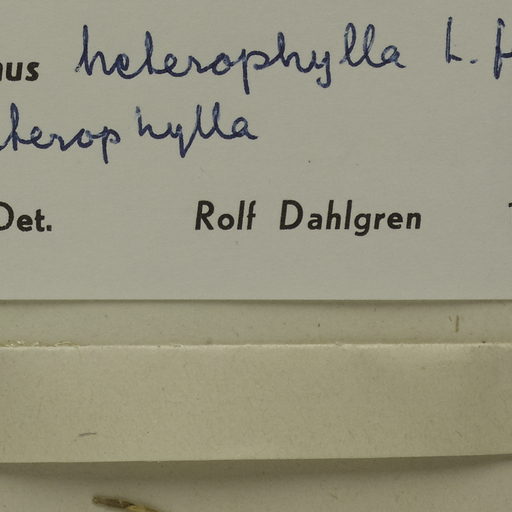 heterophylla L.
heterophylla
Det. Rolf Dahlgren